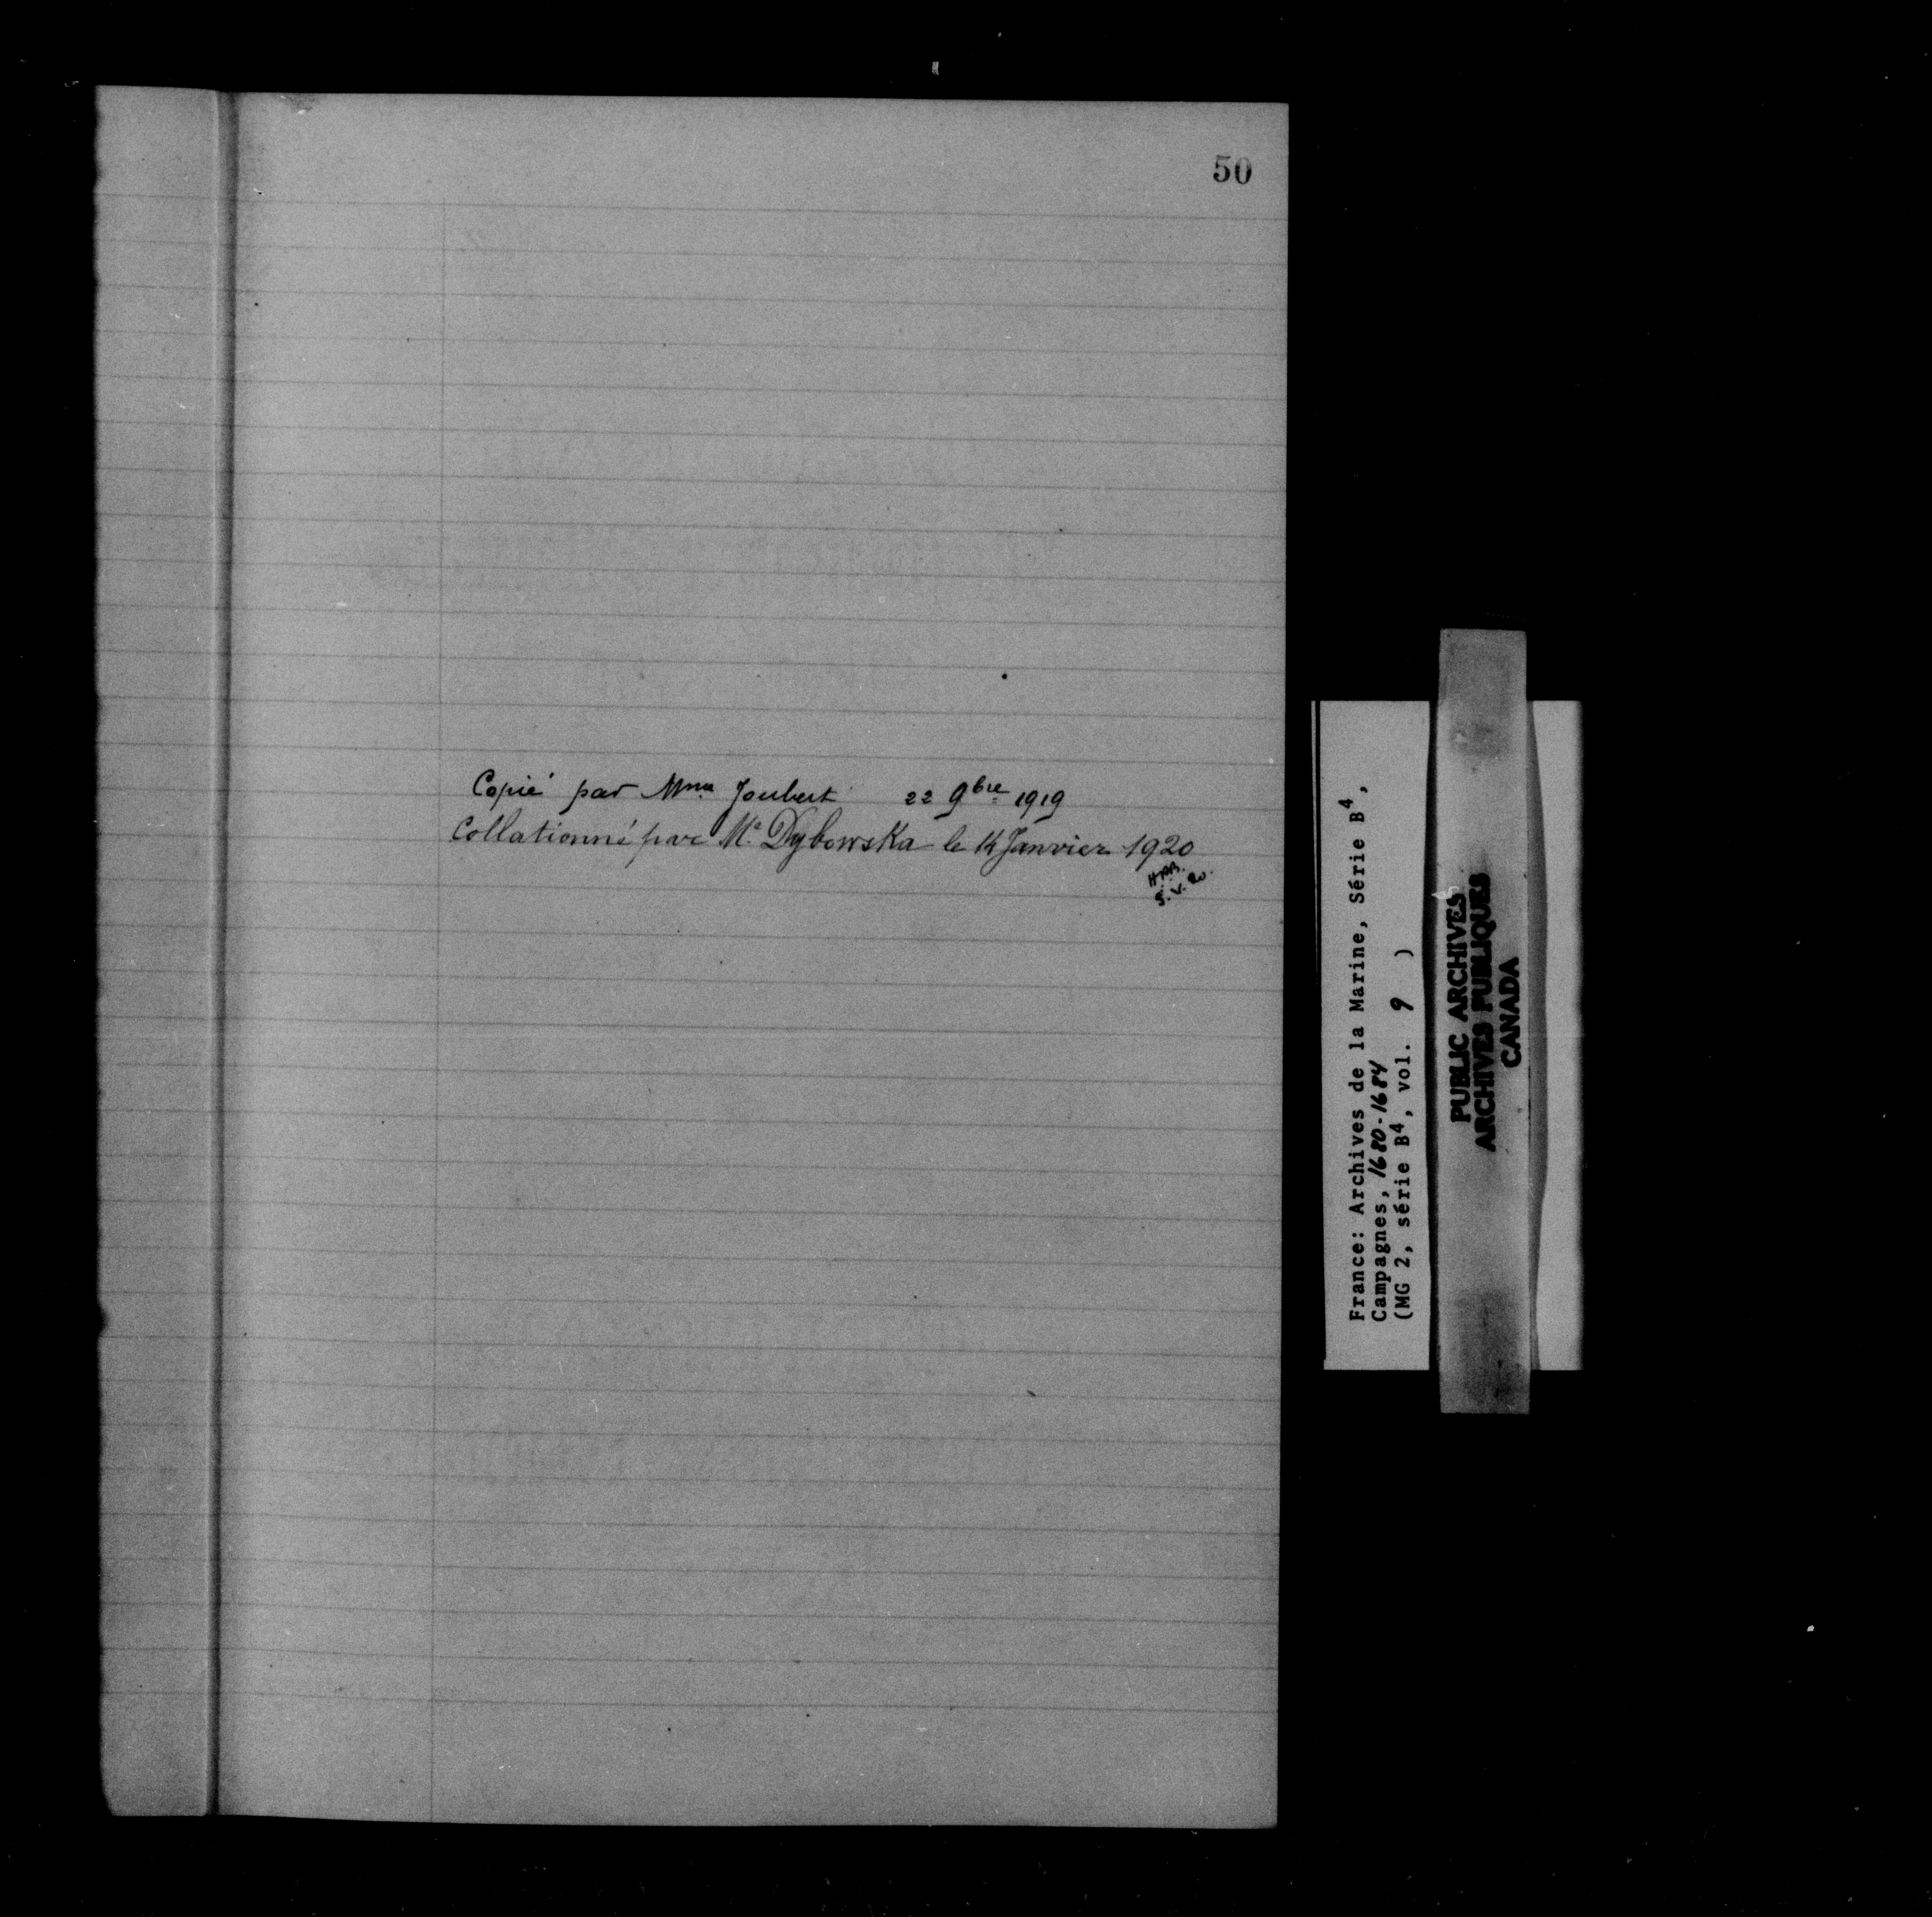 50
Copié par Mme Joubert 22 9bre 1919
Collationné par Me Dybowska le 14 Janvier 1920
5.V.20.
France: Archives de la Marine, Série B4,
Campagnes, 1680-1684
(MG 2, série B4, vol. 9 )
PUBLIC ARCHIVES
ARCHIVES PUBLIQUES
CANADA